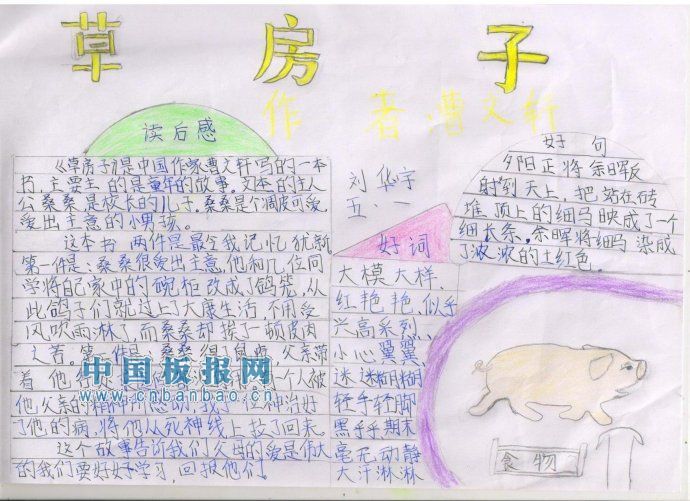 草房子
作者曹文轩
读后感
《草房子》是中国作家曹文轩写的一本
书,主要主的是童年的故事。文本的主人
公桑桑是校长的儿子。桑桑是个调皮可爱,
爱出主意的小男孩。
这本书两件是最令我记忆犹新
第一件是:桑桑很爱出主意,他和几位同
学将自己家中的碗柜改成了鸽笼,从
此鸽子们就过上了大康生活,不用受
风吹雨淋了,而桑桑却挨了一顿皮肉
之苦。第二件是:桑桑得了鼠疮,父亲带
着他
个人被
他父亲的精神所感动,
治好
了他的病,将他从死神线上拉了回来。
这个故事告诉我们父母的爱是伟大
的我们要好好学习,回报他们!
刘华宇
五·一
好词
大模大样、
红艳艳、似乎
兴高采烈、
小心翼翼、
迷迷糊糊
轻手轻脚
黑乎乎期末
毫无动静
大汗淋淋
好句
夕阳正将余晖
射到天上,把站在砖
堆顶上的细马映成了一个
细长条。余晖将细马染成
了浓浓的土红色。
食物
中国板报网
www.cnbanbao.cn